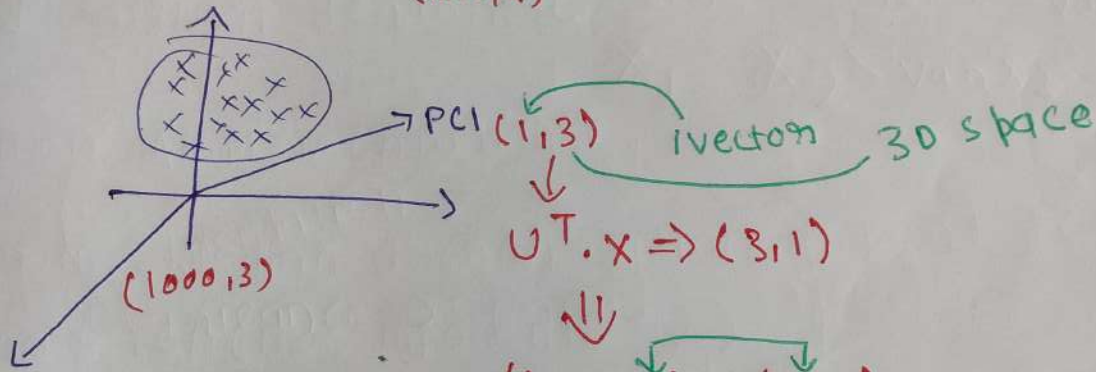 PC1 (1,3) 1vector 3D space
U^T.x => (3,1)
(1000,3)